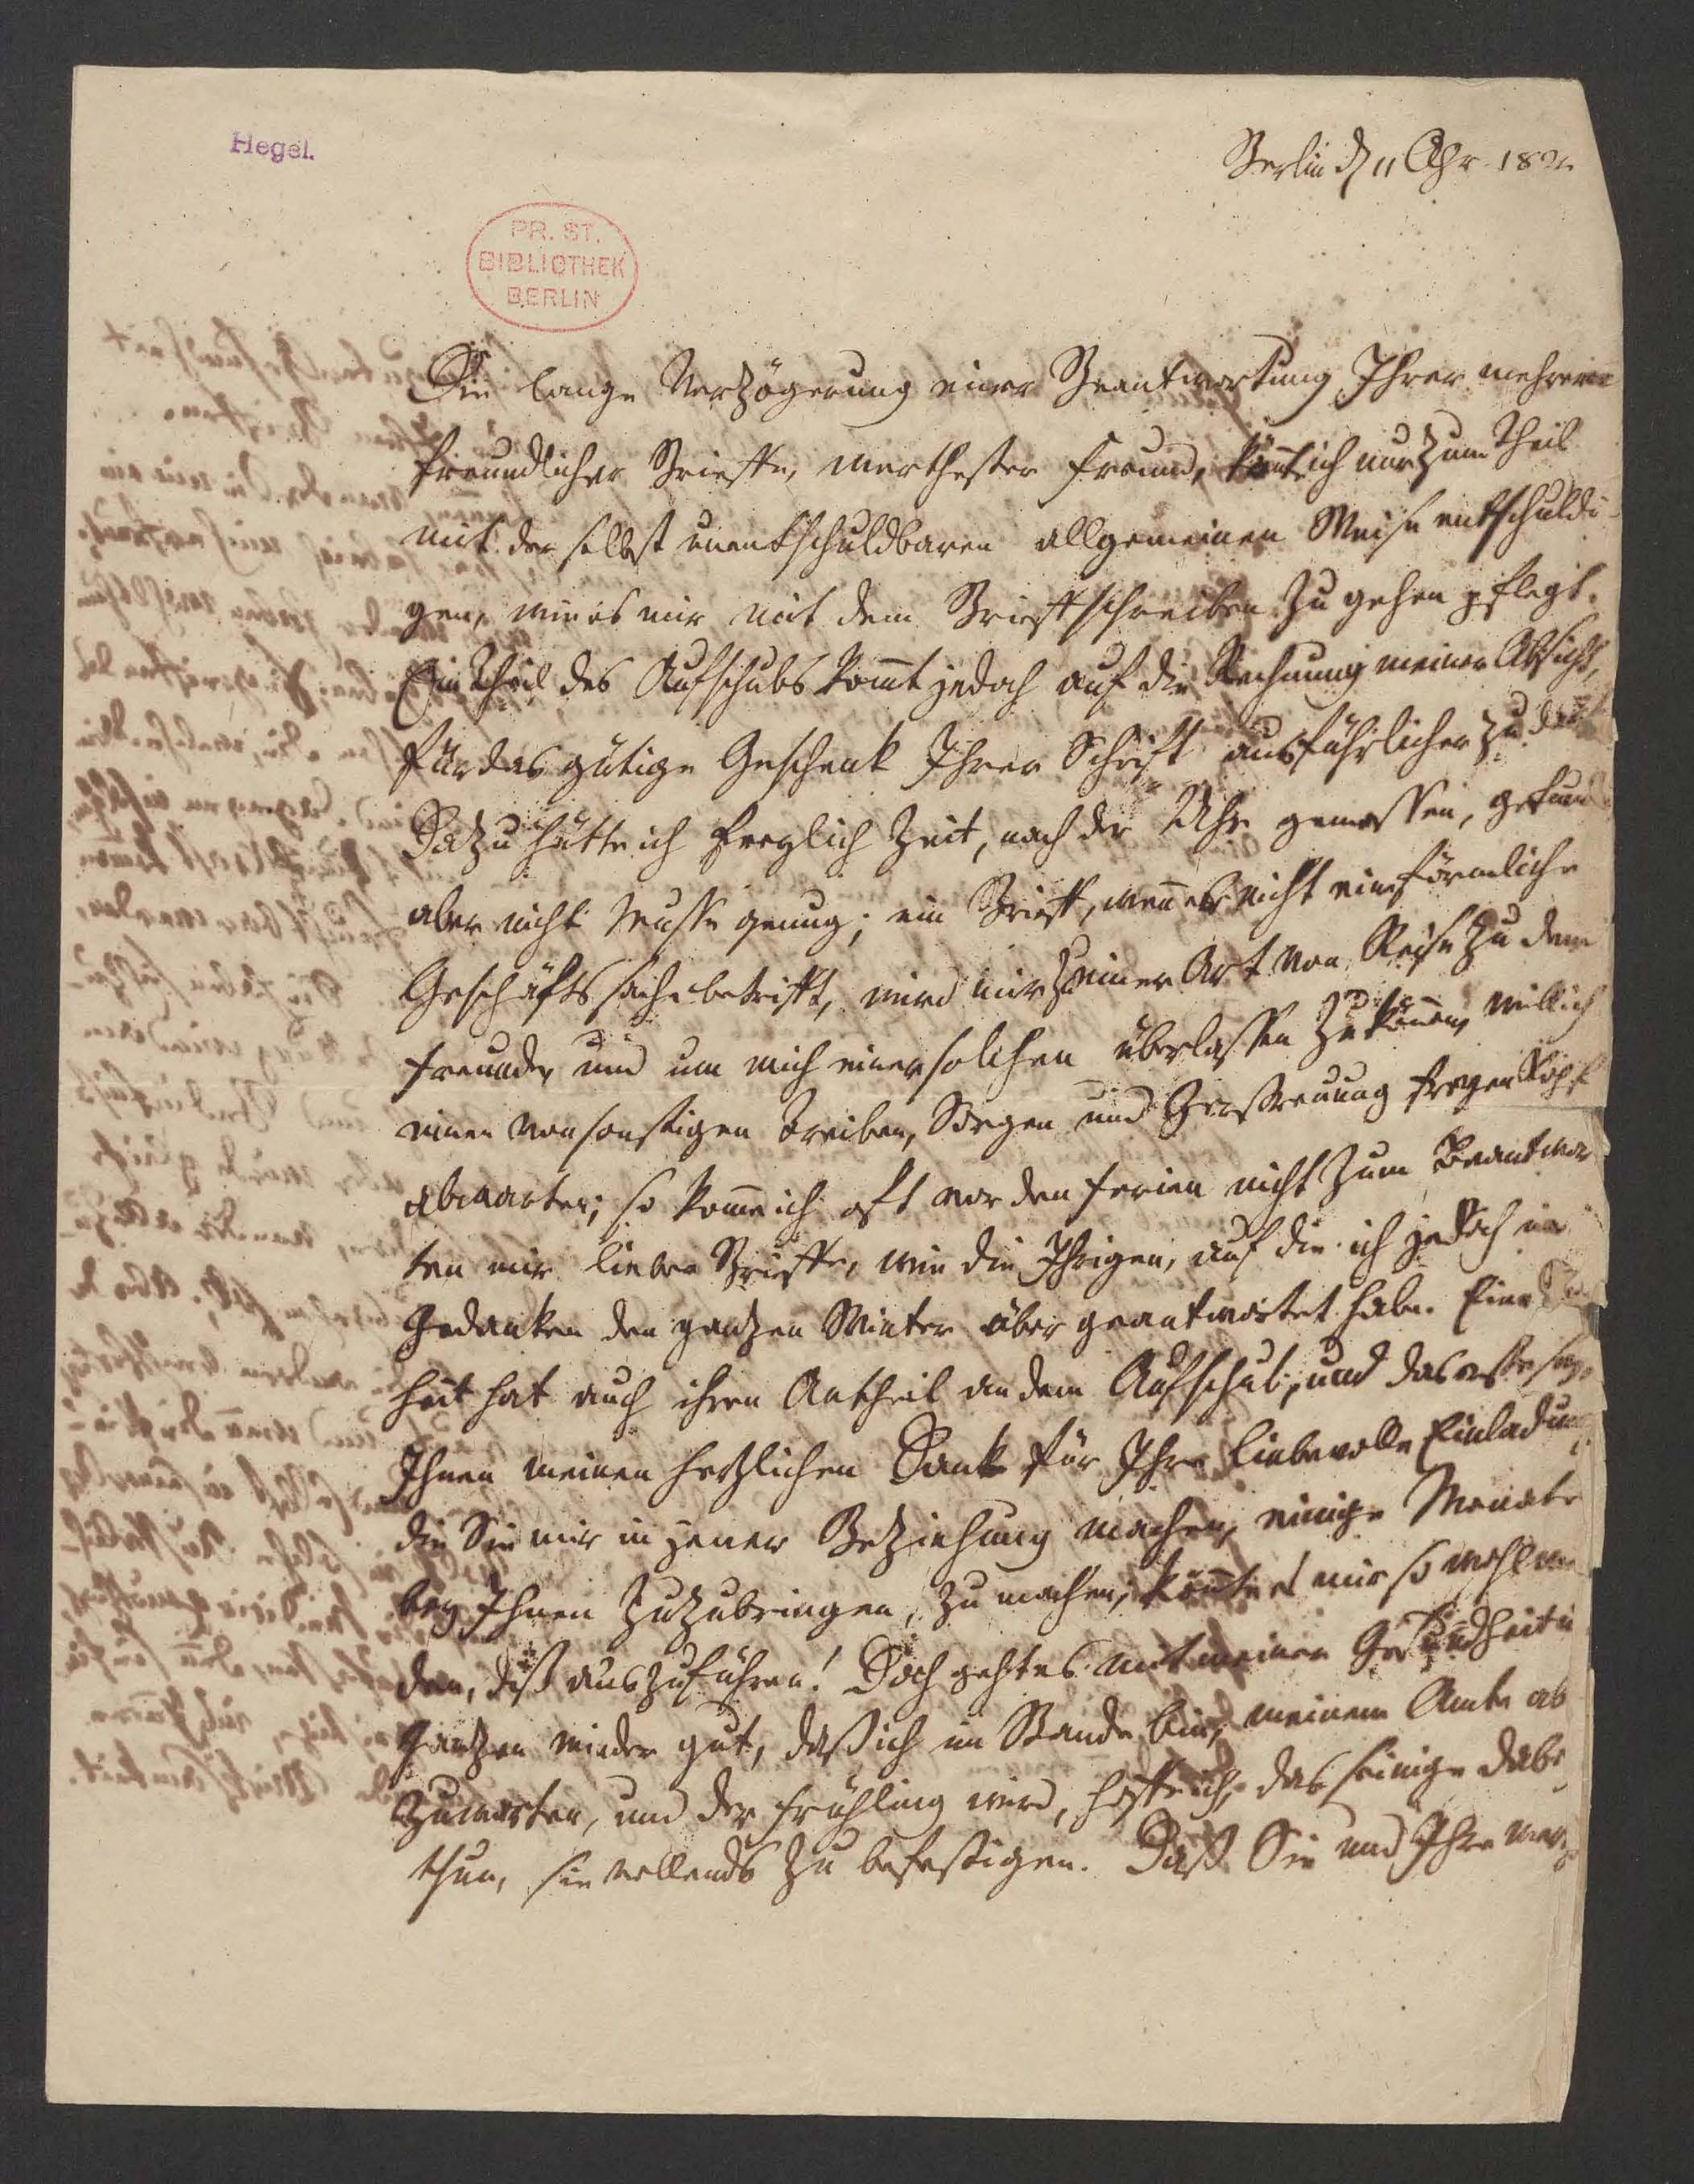 Hegel.
Berlin d 11 Apr 182
PR. ST.
BIBLIOTHEK
BERLIN
Die lange Verzögerung einer Beantwortung Ihrer mehrere
freundlicher Brieffe, werthester Freund, könnte ich nur zum Theil
mit der selbst unentschuldbaren allgemeinen Weise entschuldi-
gen, wie es mir mit dem Briefschreiben zu gehen pflegt.
Ein Theil des Aufschubs kom̄t jedoch auf die Rechnung meiner Absicht,
für das gütige Geschenk Ihrer Schrift ausführlicher zu dank
Dazu hätte ich freylich Zeit, nach der Uhr gemessen, gefund
aber nicht Musse genug; ein Brieff, wen̄ er nicht eine förmliche
Geschäftssache betrifft, wird mir zu einer Art von Reise zu dem
Freunde, und um mich einer solchen überlassen zu kön̄en, will ich
einen von sonstigen Treiben, Sorgen und Zerstreuung freyen Kopf
abwarten; so kom̄e ich oft vor den Ferien nicht zum Beantwor
ten mir lieber Brieffe, wie die Ihrigen, auf die ich jedoch in
Gedanken den ganzen Winter über geantwortet habe. Eine
heit hat auch ihren Antheil an dem Aufschub, und das erste sey
Ihnen meinen herzlichen Dank für Ihre liebevolle Einladung
die Sie mir in jener Beziehung machen, einige Monate
bey Ihnen zuzubringen, zu machen; könnte es mir so wohl wer
den, diß auszuführen! Doch geht es mit meiner Gesundheit i
Ganzen wieder gut, daß ich im Stande bin, meinem Amte ab
zuwarten, und der Frühling wird, hoffe ich, das seinige dabe
thun, sie vollends zu befestigen. Daß Sie und Ihre wer